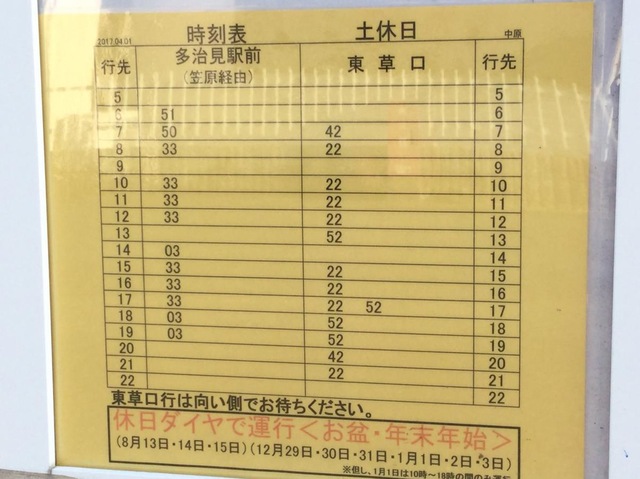 2017.04.01 時刻表 土休日 中原
行先 多治見駅前 東草口 行先
(笠原経由)
5 5
6 51 6
7 50 42 7
8 33 22 8
9 9
10 33 22 10
11 33 22 11
12 33 22 12
13 52 13
14 03 14
15 33 22 15
16 33 22 16
17 33 22 52 17
18 03 52 18
19 03 52 19
20 42 20
21 22 21
22 22
東草口行は向い側でお待ちください。
休日ダイヤで運行＜お盆・年末年始＞
(8月13日・14日・15日)(12月29日・30日・31日・1月1日・2日・3日)
※但し、1月1日は10時～18時の間のみ運転